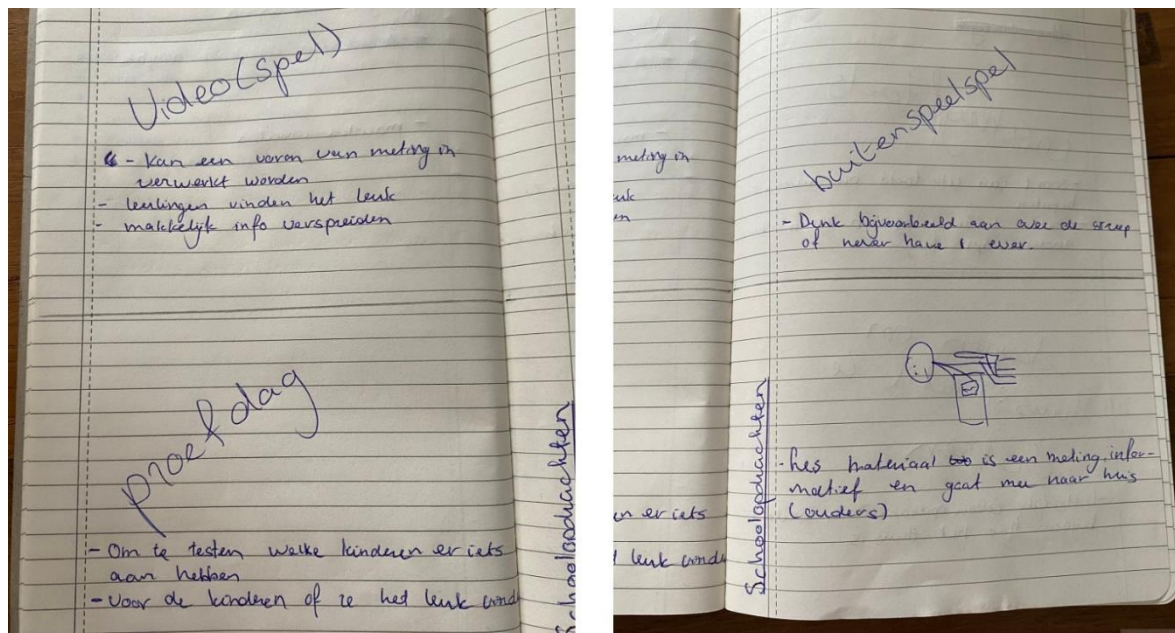 Video(spel)
- kan een voren van meting in
verwerkt worden
- leerlingen vinden het leuk
- makkelijk info verspreiden
proefdag
- Om te testen welke kinderen er iets
aan hebben
- voor de kinderen of ze het leuk vind
Schoolopdrachten
meting in
en er iets
buitenspeelspel
- Denk bijvoorbeeld aan over de streep
of never have I ever.
Schoolopdrachten
- les materiaal is een meting, infor-
matief en gaat mee naar huis
(ouders)